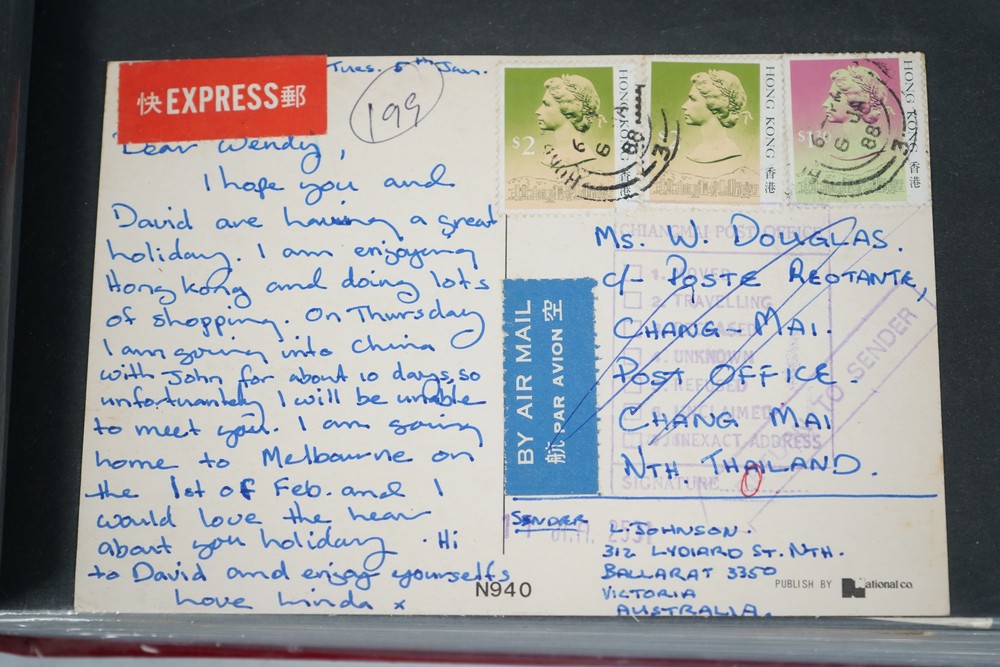 快EXPRESS郵
Tues. 5th Jan.
199
Dear Wendy,
I hope you and
David are having a great
holiday. I am enjoying
Hong Kong and doing lots
of shopping. On Thursday
I am going into China
with John for about 10 days, so
unfortunantely I will be unable
to meet you. I am going
home to Melbourne on
the 1st of Feb. and I
would love the hear
about you holiday. Hi
to David and enjoy yourselfs
Love Linda x
$2
HONG KONG 香港
HONG KONG 香港
HONG KONG 香港
88
88
BY AIR MAIL
航空 PAR AVION
CHIANGMAI POST OFFICE
1. MOVED
2. TRAVELLING
4. UNKNOWN
5. REFUSED
6. UNCLAIMED
7. INEXACT ADDRESS
SIGNATURE
RETURN TO SENDER
Ms. W. DOUGLAS.
c/- POSTE REOTANTE,
CHANG-MAI.
POST OFFICE.
CHANG MAI
NTH. THAILAND.
SENDER
L. JOHNSON.
312 LYDIARD ST. NTH.
BALLARAT 3350
VICTORIA
AUSTRALIA.
N940
PUBLISH BY National co.